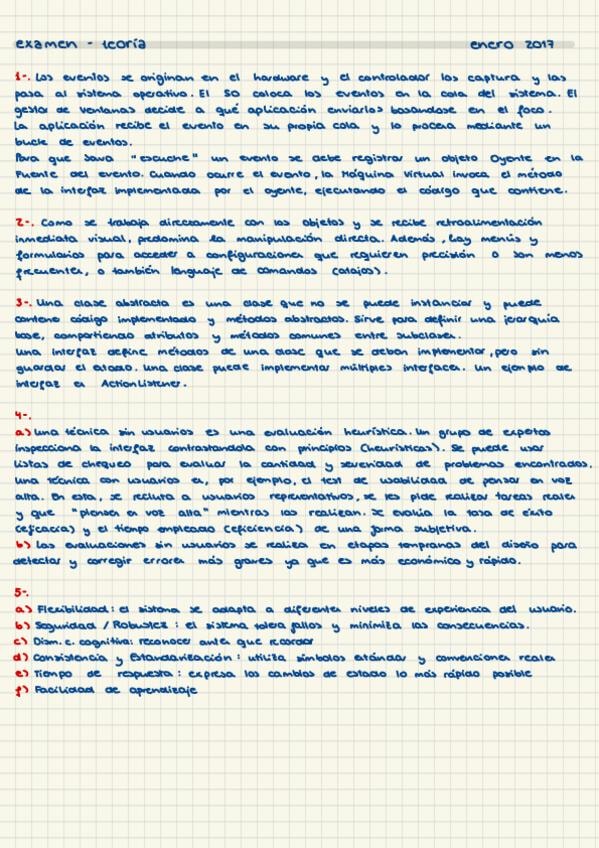 examen - teoría enero 2017
1-. Los eventos se originan en el hardware y el controlador los captura y los
pasa al sistema operativo. El SO coloca los eventos en la cola del sistema. El
gestor de ventanas decide a qué aplicación enviarlos basándose en el foco.
La aplicación recibe el evento en su propia cola y lo procesa mediante un
bucle de eventos.
Para que Java "escuche" un evento se debe registrar un objeto Oyente en la
Fuente del evento. Cuando ocurre el evento, la Máquina Virtual invoca el método
de la interfaz implementada por el oyente, ejecutando el código que contiene.
2-. Como se trabaja directamente con los objetos y se recibe retroalimentación
inmediata visual, predomina la manipulación directa. Además, hay menús y
formularios para acceder a configuraciones que requieren precisión o son menos
frecuentes, o también lenguaje de comandos (atajos).
3-. Una clase abstracta es una clase que no se puede instanciar y puede
contene código implementado y métodos abstractos. Sirve para definir una jerarquía
base, compartiendo atributos y métodos comunes entre subclases.
Una interfaz define métodos de una clase que se deben implementar, pero sin
guardar el estado. Una clase puede implementar múltiples interfaces. Un ejemplo de
interfaz es ActionListener.
4-.
a) Una técnica sin usuarios es una evaluación heurística. Un grupo de expertos
inspecciona la interfaz contrastandola con principios (heurísticas). Se puede usar
listas de chequeo para evaluar la cantidad y severidad de problemas encontrados.
Una técnica con usuarios es, por ejemplo, el test de usabilidad de pensar en voz
alta. En esta, se recluta a usuarios representativos, se les pide realizar tareas reales
y que "piensen en voz alta" mientras las realizan. Se evalúa la tasa de éxito
(eficacia) y el tiempo empleado (eficiencia) de una forma subjetiva.
b) Las evaluaciones sin usuarios se realiza en etapas tempranas del diseño para
detectar y corregir errores más graves ya que es más económico y rápido.
5-.
a) Flexibilidad: el sistema se adapta a diferentes niveles de experiencia del usuario.
b) Seguridad / Robustez: el sistema tolera fallos y minimiza las consecuencias.
c) Dism. c. cognitiva: reconocer antes que recordar
d) Consistencia y Estandarización: utiliza símbolos estándar y convenciones reales
e) Tiempo de respuesta: expresa los cambios de estado lo más rápido posible
f) Facilidad de aprendizaje